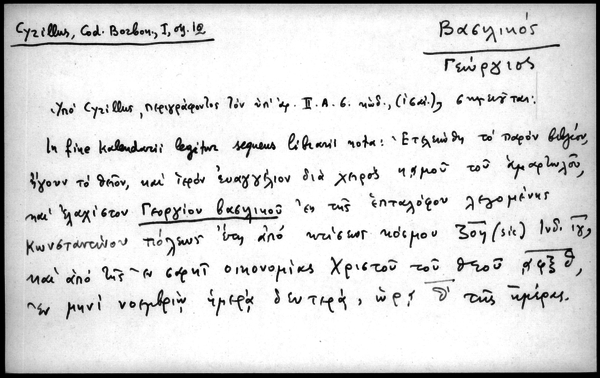 Cyrillus, Cod. Borbon., I, ση. 12
Βασιλικός
Γεώργιος
Ὑπό Cyrillus, περιγράφοντος τὸν ὑπ' ἀρ. II. A. 6. κώδ.,
σημειοῦται:
In fine Kalendarii legitur sequens librarii nota: Ἐτελειώθη τὸ παρὸν βιβλίον,
ἤγουν τὸ θεῖον, καὶ ἱερὸν εὐαγγέλιον διὰ χειρὸς κἀμοῦ τοῦ ἁμαρτωλοῦ,
καὶ ἐλαχίστου Γεωργίου βασιλικοῦ ἐν τῆς ἑπταλόφου λεγομένης
Κωνσταντίνου πόλεως ἔτη ἀπὸ κτίσεως κόσμου ζοη (sic) Ινδι. ιγ,
καὶ ἀπὸ τῆς ἐν σαρκὶ οἰκονομίας Χριστοῦ τοῦ θεοῦ ͵αφξθ,
ἐν μηνὶ νοεμβρίῳ ἡμέρᾳ δευτέρᾳ, ὥρᾳ θ' τῆς ἡμέρας.